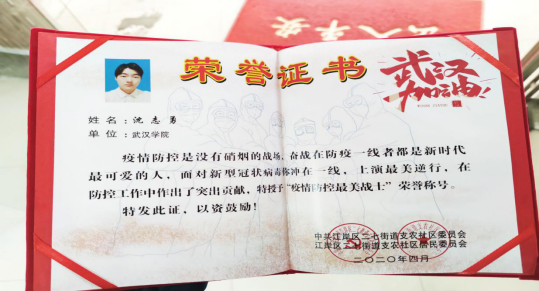 荣誉证书
武汉
加油!
姓名:沈志勇
单位:武汉学院
疫情防控是没有硝烟的战场,奋战在防疫一线者都是新时代
最可爱的人,面对新型冠状病毒你冲在一线,上演最美逆行,在
防控工作中作出了突出贡献,特授予“疫情防控最美战士”荣誉称号。
特发此证,以资鼓励!
中共江岸区二七街道支农社区委员会
江岸区二七街道支农社区居民委员会
二〇二〇年四月